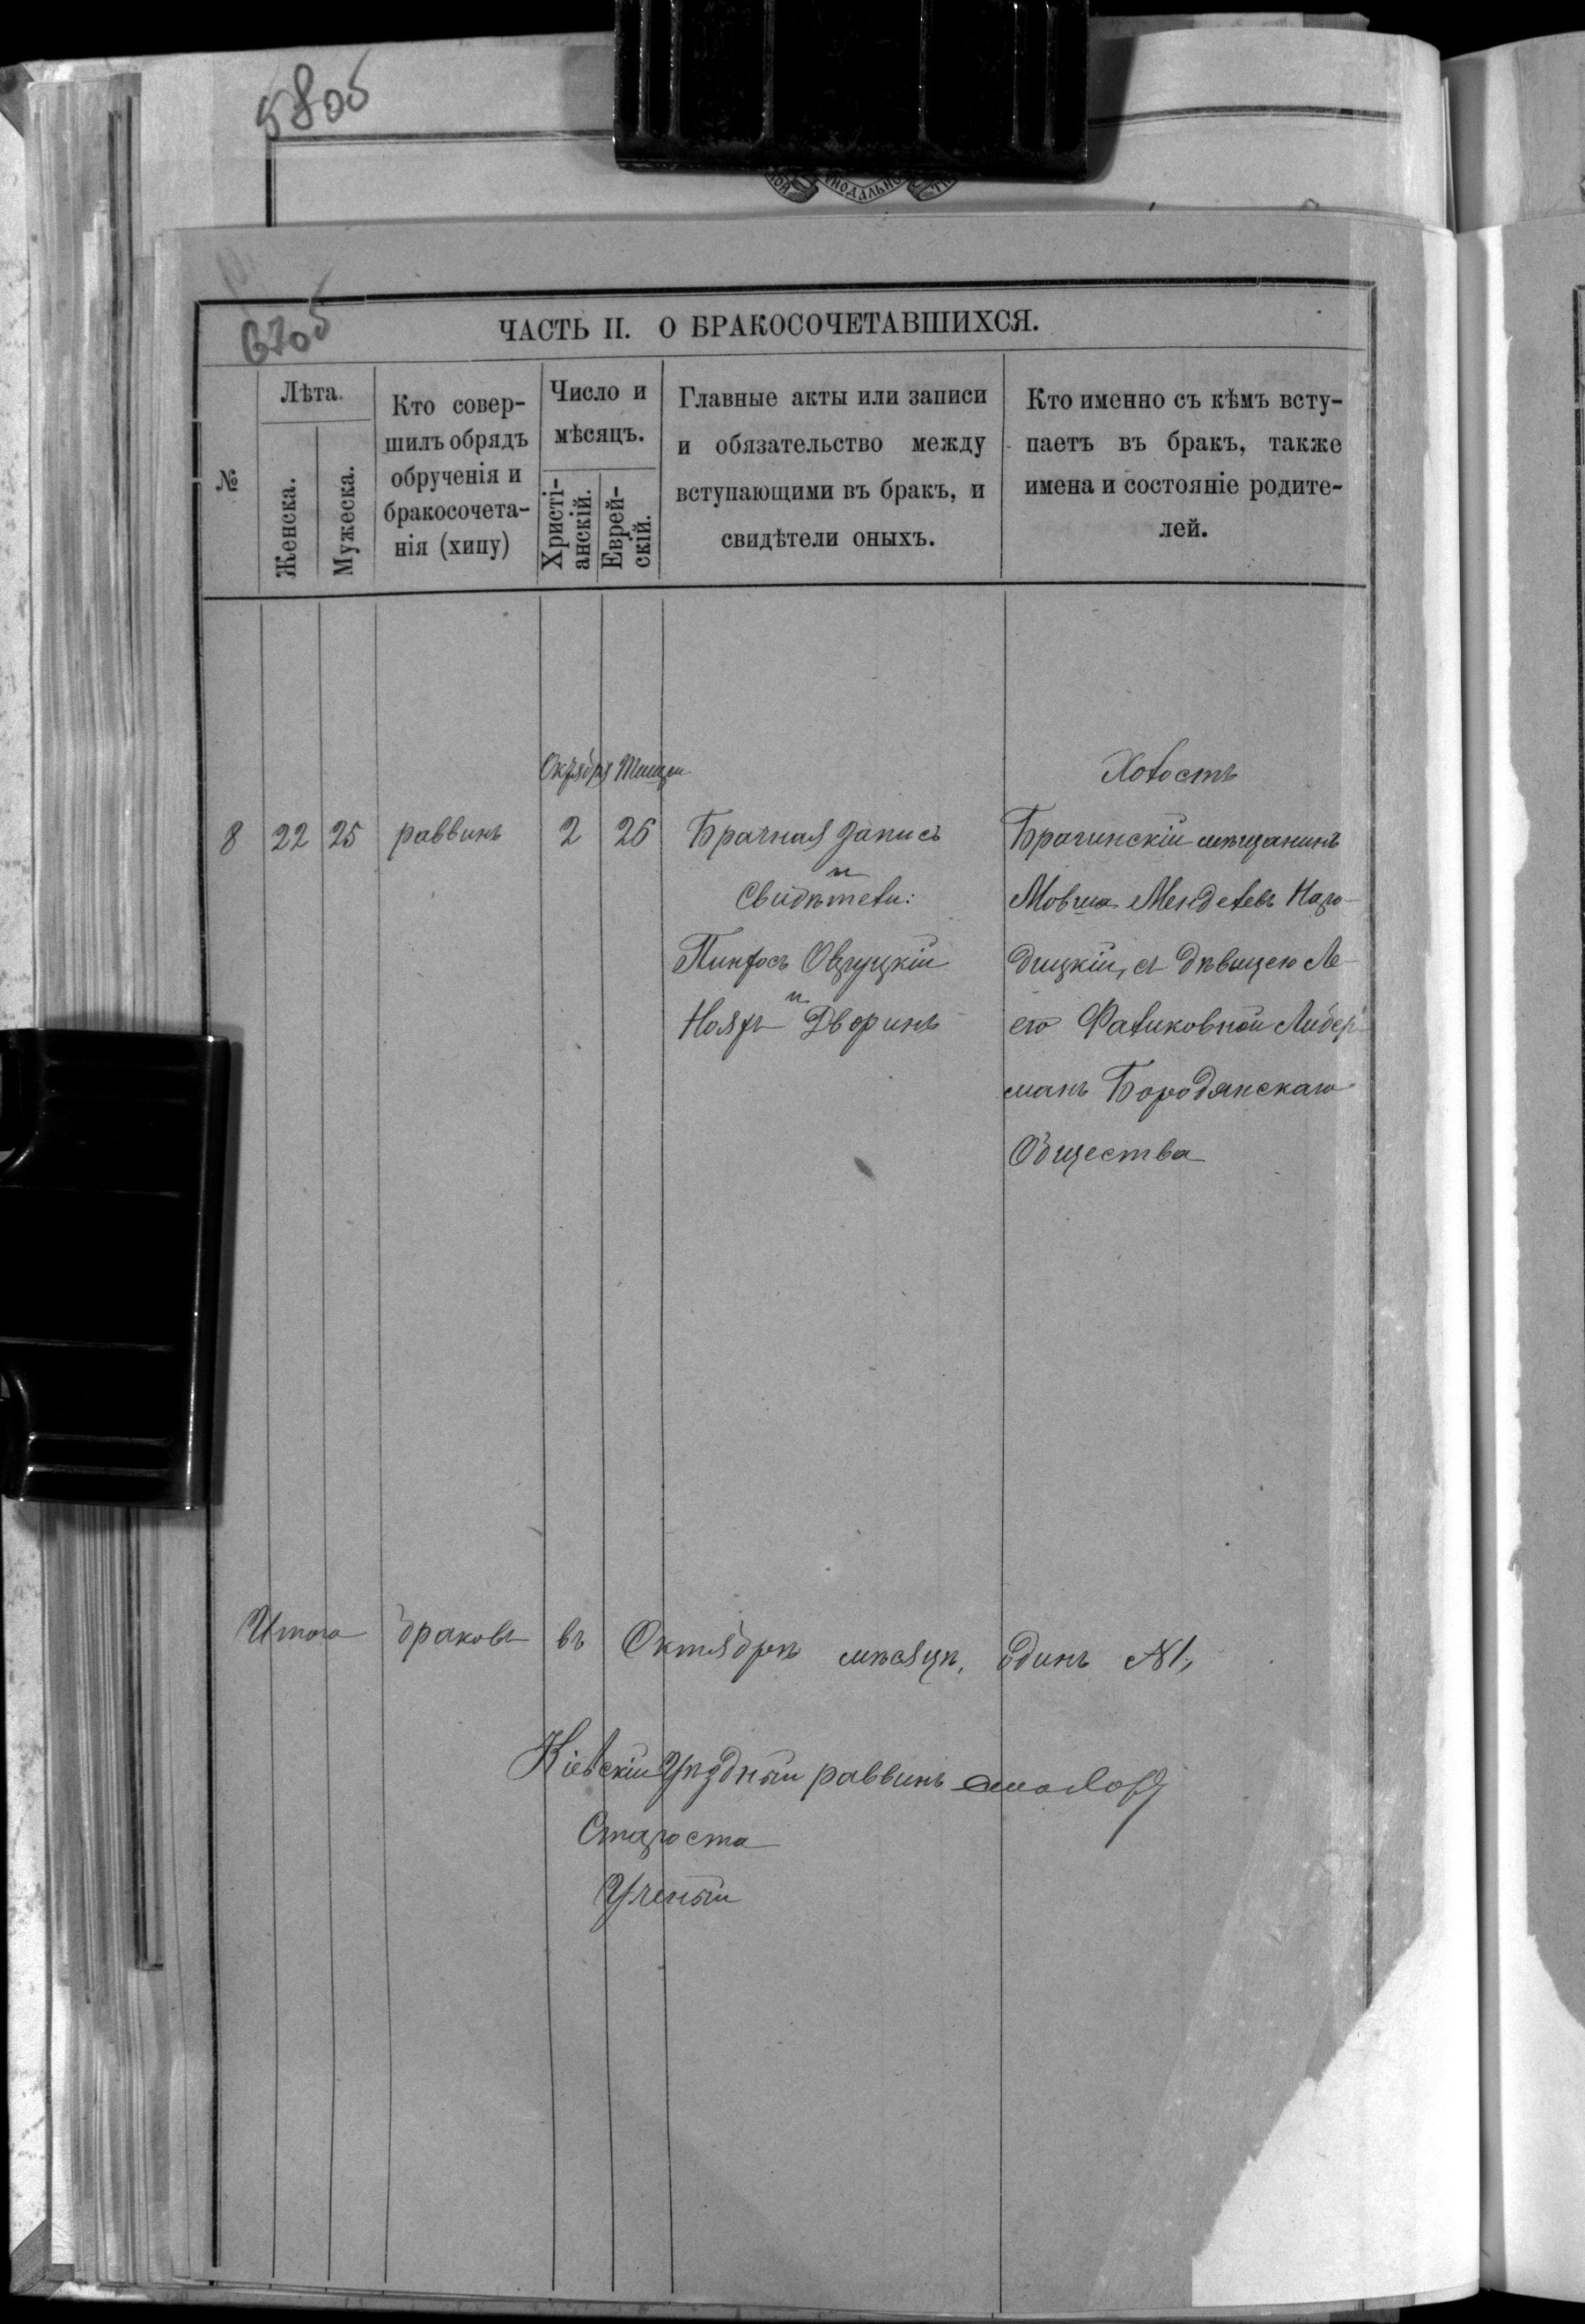 58об
НОДАЛЬНО
67об
ЧАСТЬ II. О БРАКОСОЧЕТАВШИХСЯ.
№
Лѣта.
Женска.
Мужеска.
Кто совер-
шилъ обрядъ
обрученія и
бракосочета-
нія (хипу)
Число и
мѣсяцъ.
Христі-
анскій.
Еврей-
скій.
Главные акты или записи
и обязательство между
вступающими въ бракъ, и
свидѣтели оныхъ.
Кто именно съ кѣмъ всту-
паетъ въ бракъ, также
имена и состояніе родите-
лей.
Октября Тишри
Холостъ
8 22 25 раввинъ 2 26 Брачная запись
и
Свидѣтели:
Пинхосъ Овруцкій
и
Нояхъ Дворинъ
Брагинскій мѣщанинъ
Мовша Менделевъ Наро-
дицкій, съ дѣвицею Ле-
ею Фаликовной Либер-
манъ Бородянскаго
Общества
Итого браковъ въ Октябрѣ мѣсяцѣ, одинъ №1,
Кіевскій Уѣздный раввинъ
Староста
Ученый